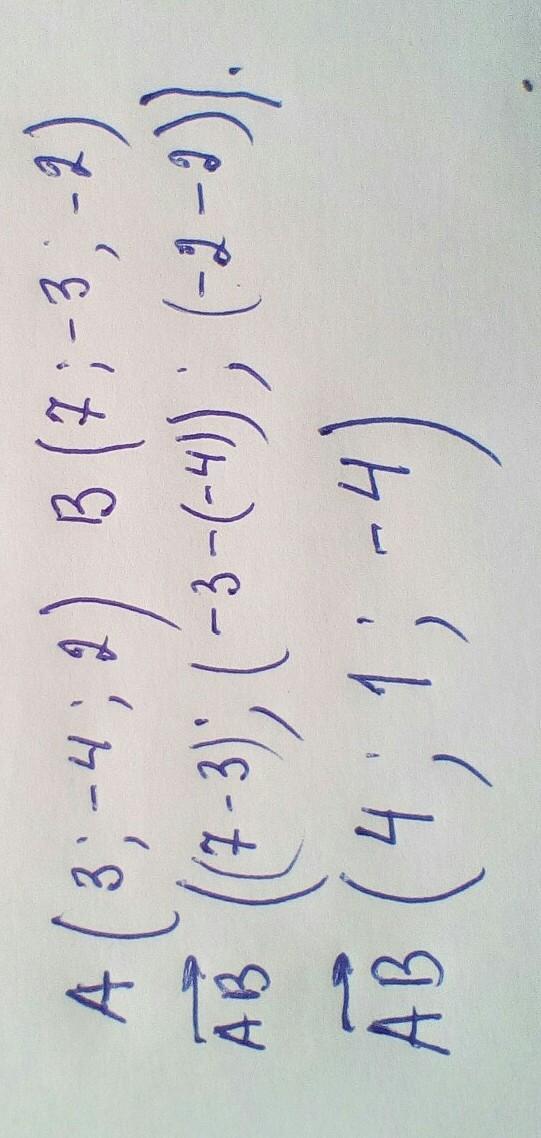 A(3;-4;2) B(7;-3;-2)
→AB((7-3);(-3-(-4));(-2-2)).
→AB(4;1;-4)